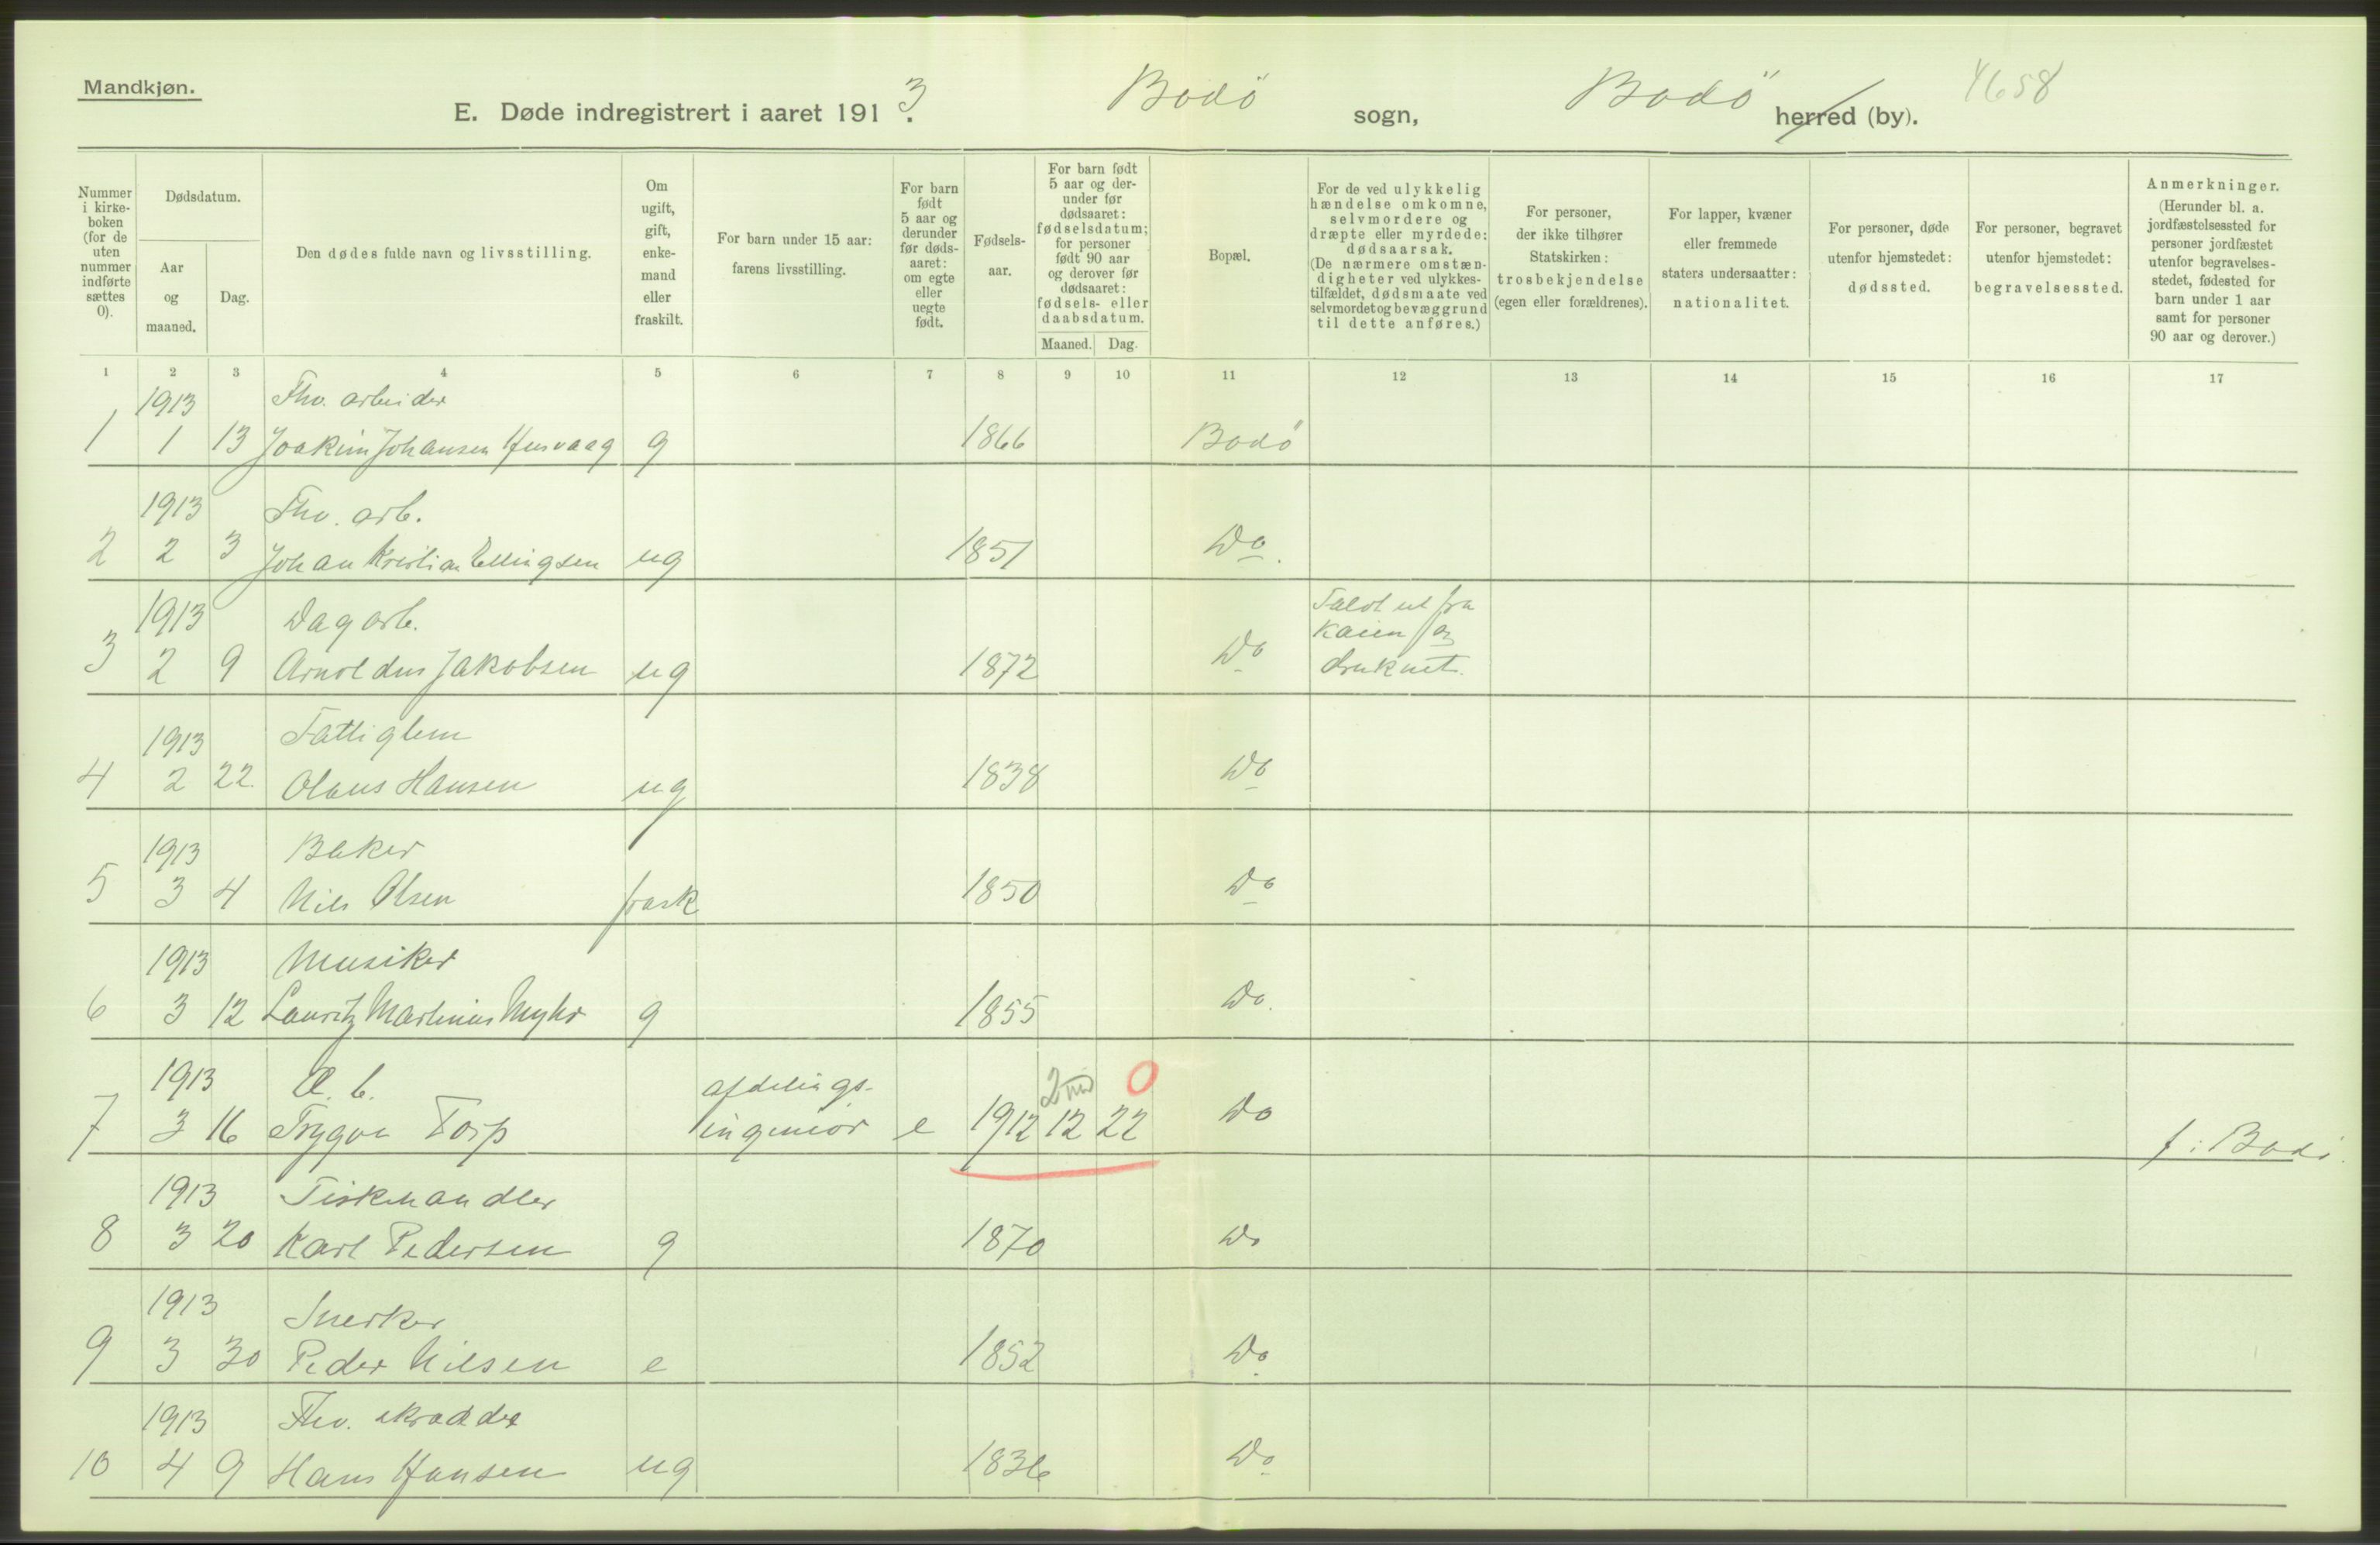 Mandkjøn.
E. Døde indregistrert i aaret 1913. Bodö sogn, Bodö herred (by). 4658
Nummer i kirke-boken (for de uten nummer indførte sættes 0).
Dødsdatum.
Aar og maaned.
Dag.
Den dødes fulde navn og livsstilling.
Om ugift, gift, enke-mand eller fraskilt.
For barn under 15 aar: farens livsstilling.
For barn født 5 aar og derunder før døds-aaret: om egte eller uegte født.
Fødsels-aar.
For barn født 5 aar og der-under før dødsaaret: fødselsdatum; for personer født 90 aar og derover før dødsaaret: fødsels- eller daabsdatum.
Maaned. Dag.
Bopæl.
For de ved ulykkelig hændelse omkomne, selvmordere og dræpte eller myrdede: dødsaarsak. (De nærmere omstæn-digheter ved ulykkes-tilfældet, dødsmaate ved selvmordet og bevæggrund til dette anføres.)
For personer, der ikke tilhører Statskirken: trosbekjendelse (egen eller forældrenes).
For lapper, kvæner eller fremmede staters undersaatter: nationalitet.
For personer, døde utenfor hjemstedet: dødssted.
For personer, begravet utenfor hjemstedet: begravelsessted.
Anmerkninger. (Herunder bl. a. jordfæstelsessted for personer jordfæstet utenfor begravelses-stedet, fødested for barn under 1 aar samt for personer 90 aar og derover.)
1 2 3 4 5 6 7 8 9 10 11 12 13 14 15 16 17
1913 Fhv. arbeider
1 1 13 Joakim Johansen Husvaag g 1866 Bodö
1913 Fhv. arb.
2 2 3 Johan Kristian Ellingsen ug 1851 Do.
1913 Dagarb. Faldt ut fra kaien og druknet.
3 2 9 Arnoldus Jakobsen ug 1872 Do
1913 Fattiglem
4 2 22. Olaus Hansen ug 1838 Do
1913 Baker
5 3 4 Nils Olsen frask 1850 Do
1913 Musiker
6 3 12 Lauritz Martinius Myhr g 1855 Do.
1913 Æ. b. afdelings- 2 md 0
7 3 16 Trygve Torp ingeniör e 1912 12 22 Do f. i Bodö.
1913 Fiskehandler
8 3 20 Karl Pedersen g 1870 Do
1913 Snerker
9 3 30 Peder Nilsen e 1852 Do
1913 Fhv. skrædder
10 4 9 Hans Hansen ug 1836 Do